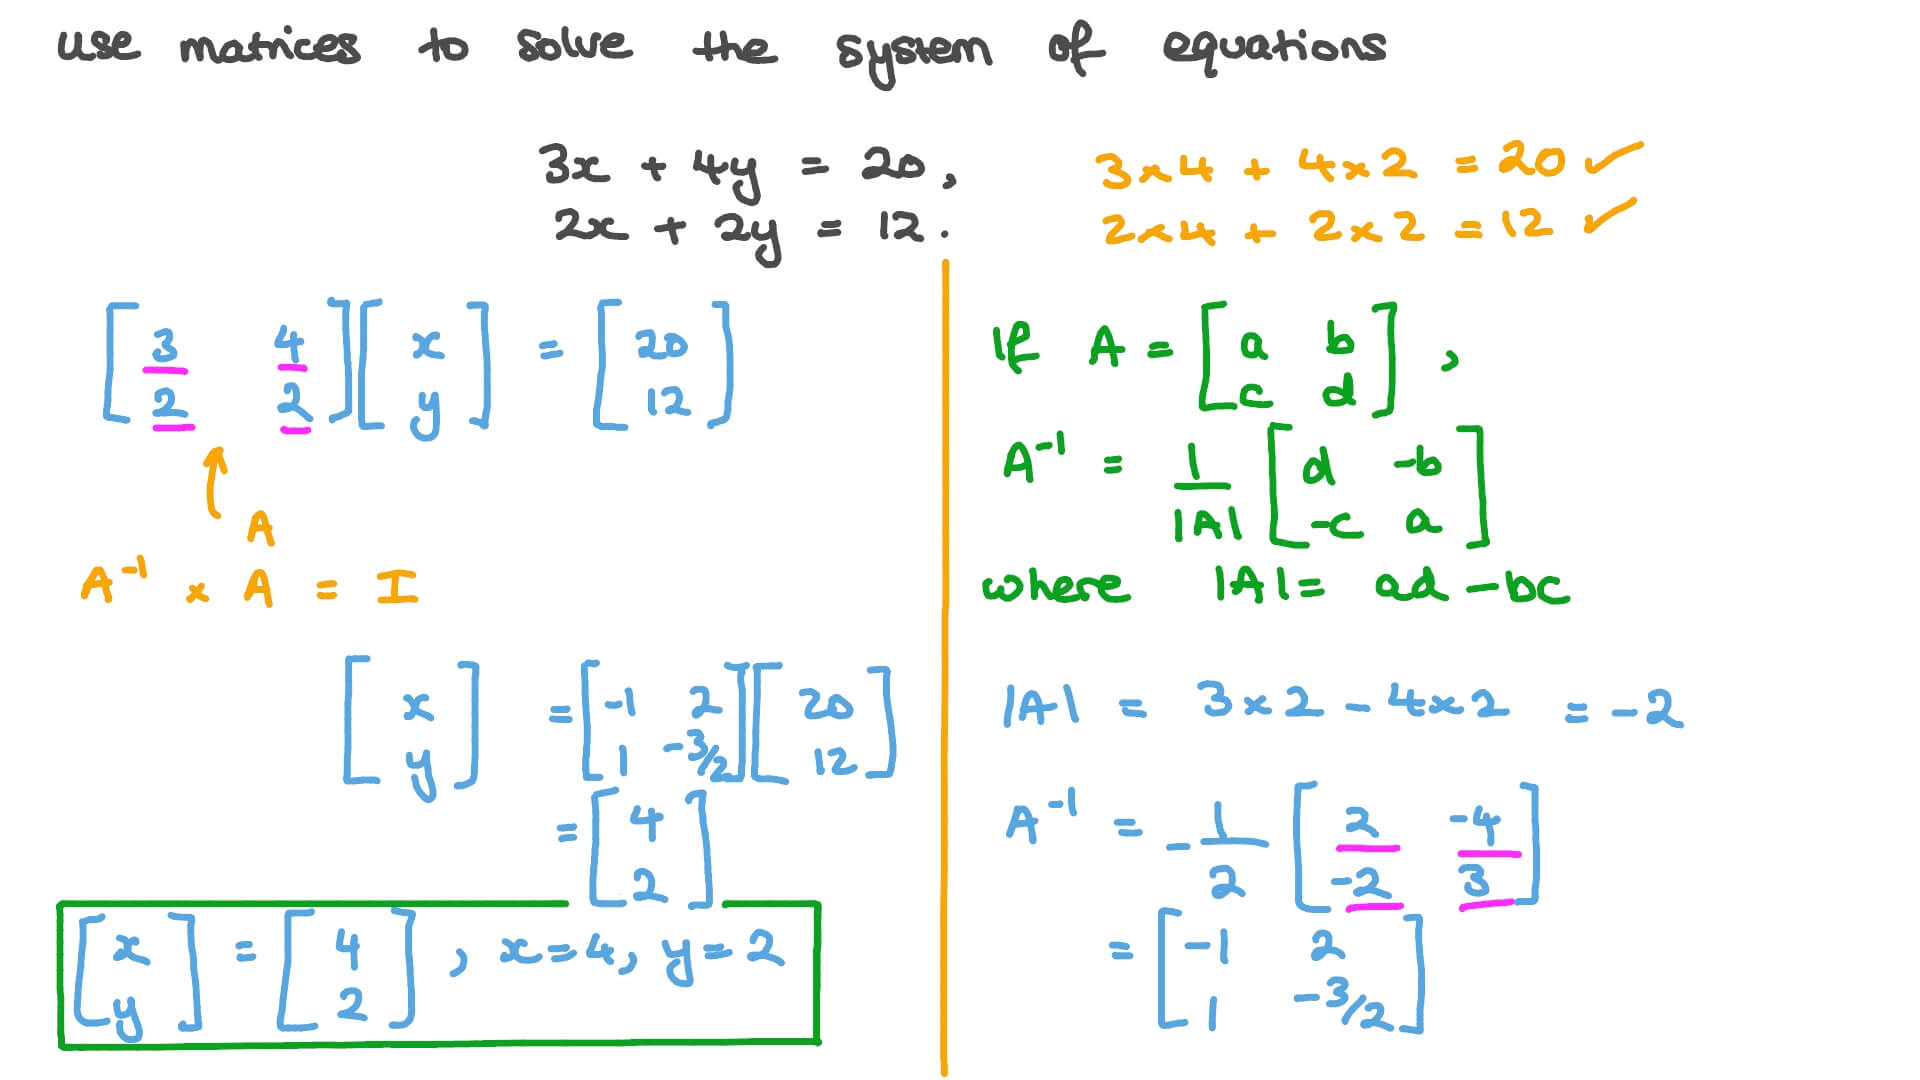 use matrices to solve the system of equations
3x + 4y = 20,
2x + 2y = 12.
3×4 + 4×2 = 20 ✓
2×4 + 2×2 = 12 ✓
[3 4; 2 2][x; y] = [20; 12]
A
A⁻¹ × A = I
[x; y] = [-1 2; 1 -3/2][20; 12]
= [4; 2]
[x; y] = [4; 2], x=4, y=2
If A = [a b; c d],
A⁻¹ = 1/|A| [d -b; -c a]
where |A| = ad - bc
|A| = 3×2 - 4×2 = -2
A⁻¹ = -1/2 [2 -4; -2 3]
= [-1 2; 1 -3/2]